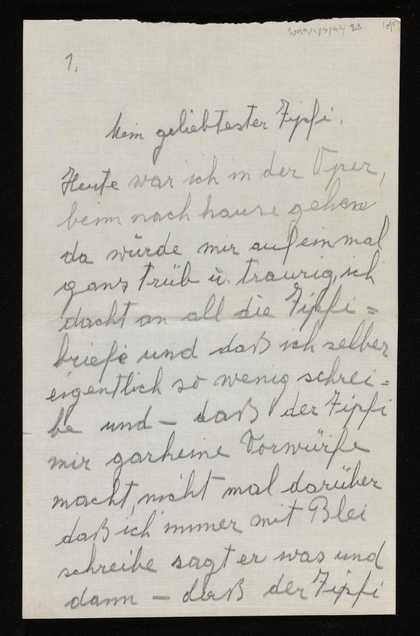 1.
Mein geliebtester Zipfi.
Heute war ich in der Oper,
beim nach hause gehen
da würde mir auf einmal
ganz trüb u. traurig, ich
dacht an all die Zipfi=
briefe und daß ich selber
eigentlich so wenig schrei=
be und – daß der Zipfi
mir garkeine Vorwürfe
macht, nicht mal darüber
daß ich immer mit Blei
schreibe sagt er was und
dann – daß der Zipfi